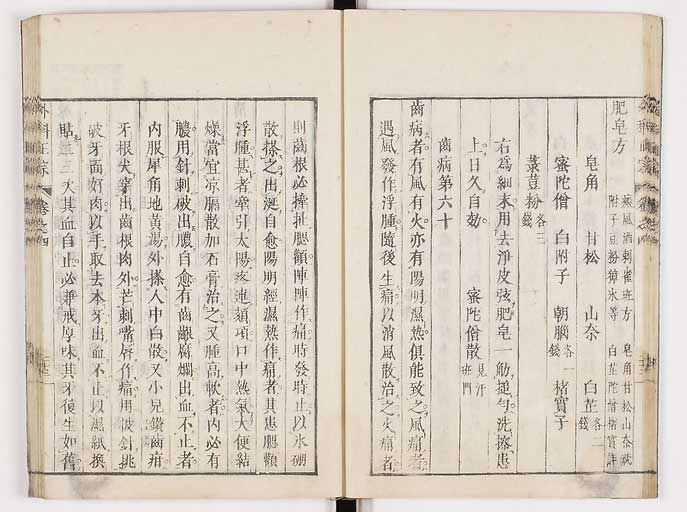 肥皂方
癜風酒刺雀斑方 皂角甘松山奈
附子豆粉猪氷等 白芷陀僧楮實
皂角 甘松 山奈 白芷各二錢
蜜陀僧 白附子 朝腦各一錢 楮實子
菉荳粉各三錢
右爲細末用去淨皮弦肥皂一觔搥勻洗擦患
上日久自効 蜜陀僧散見汗斑門
齒病第六十
齒病者有風有火亦有陽明濕熱俱能致之風痛者
遇風發作浮腫隨後生痛以消風散治之火痛者
則齒根必擁扯腮顴陣陣作痛時發時止以氷硼
散搽之出涎自愈陽明經濕熱作痛者其患腮顴
浮腫甚者牽引太陽疼連頸項口中熱氣大便結
燥當宜凉膈散加石膏治之又腫高軟者内必有
膿用針刺破出膿自愈有齒齦腐爛出血不止者
内服犀角地黄湯外搽人中白散又小兒鑚齒疳
牙根尖穿出齒根肉外芒刺嘴唇作痛用披針挑
破牙面好肉以手取去本牙出血不止以濕紙換
貼二三次其血自止必兼戒厚味其牙復生如舊
外科正宗 卷之四